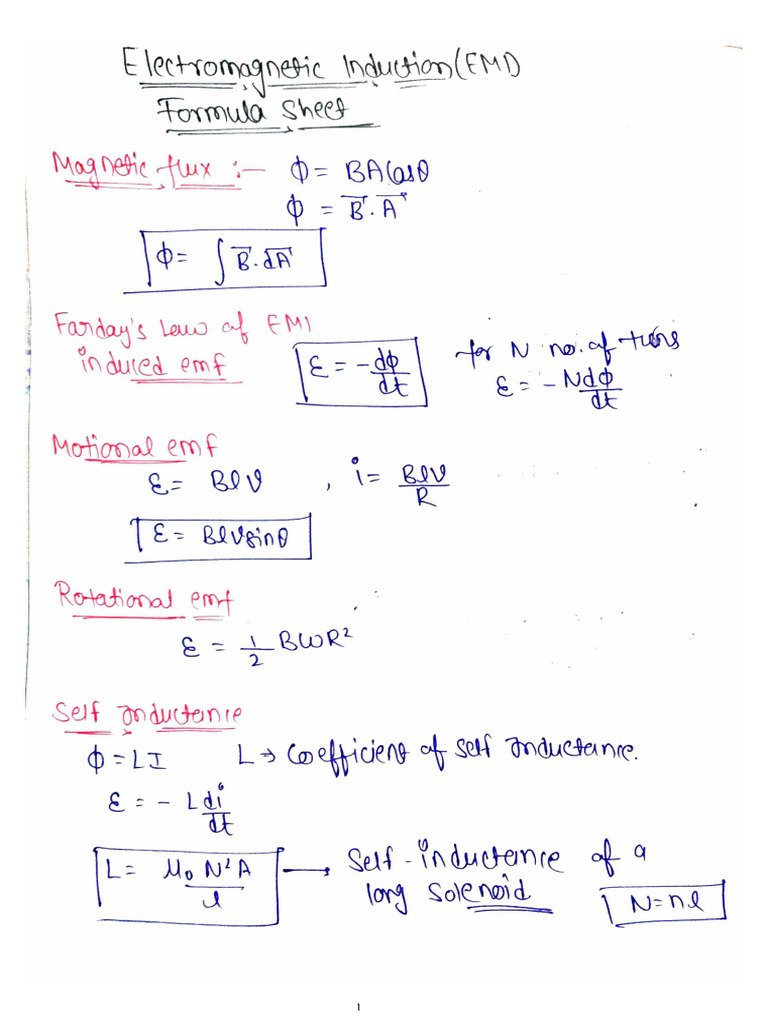 Electromagnetic Induction (EMI)
Formula Sheet
Magnetic flux :- Φ = BACosθ
Φ = B⃗.A⃗
Φ = ∫B⃗.dA⃗
Farday's Law of EMI
induced emf ε = -dΦ/dt for N no. of turns
ε = -NdΦ/dt
Motional emf
ε = Blv , i = Blv/R
ε = Blvsinθ
Rotational emf
ε = 1/2 BωR²
Self Inductance
Φ = LI L → Coefficient of Self Inductance.
ε = - L di/dt
L = μ₀N²A/l → Self-inductance of a
long Solenoid N = nl
1